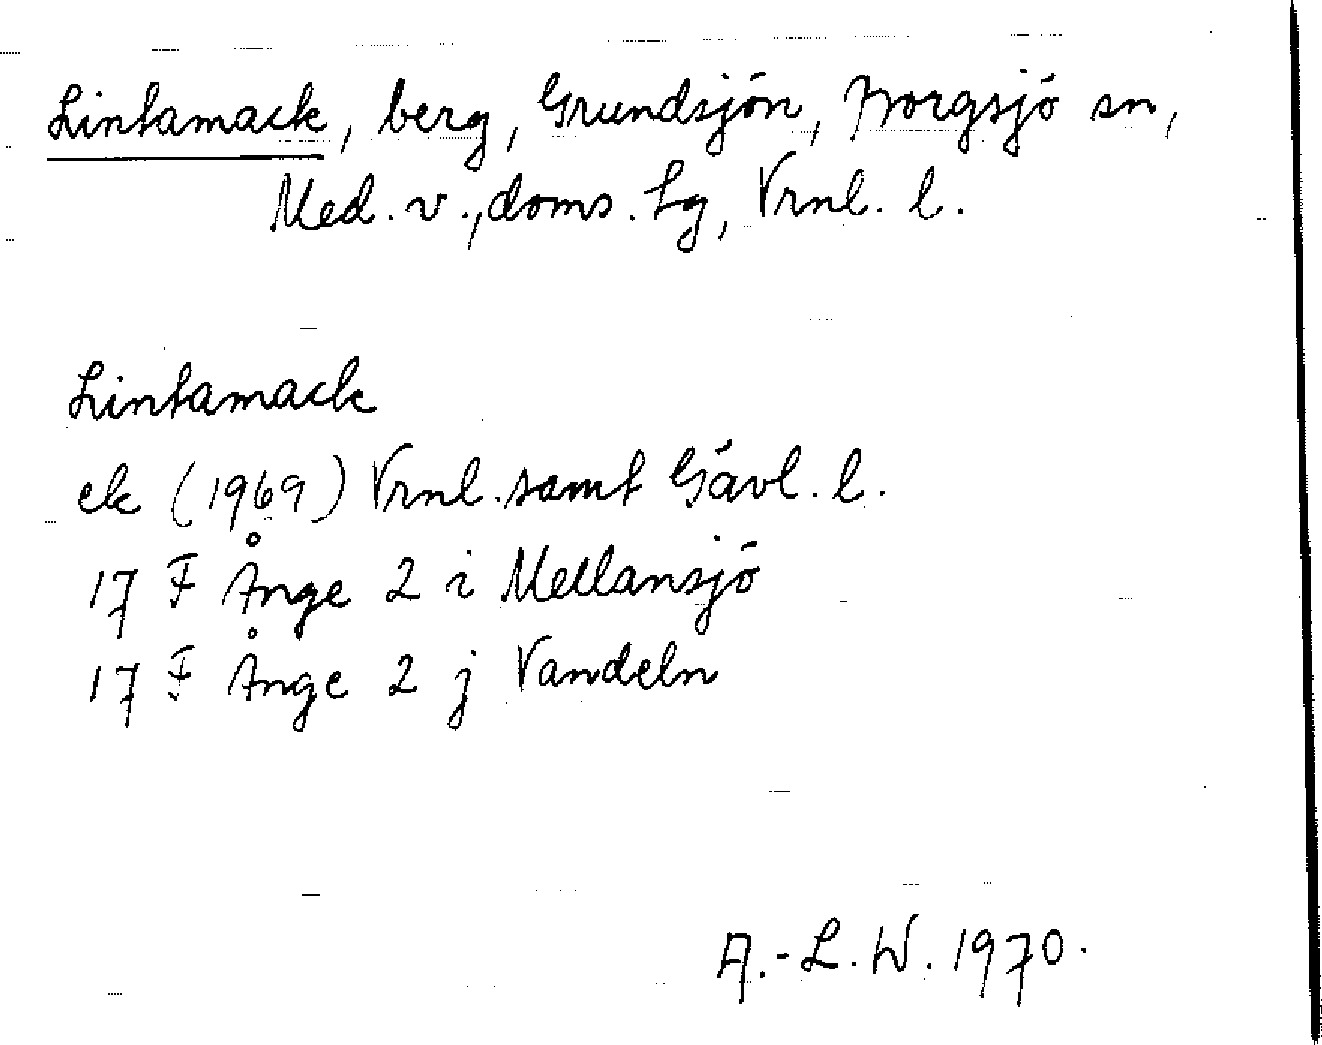 Lintamack, berg, Grundsjön, Borgsjö sn,
Med. v., doms. hg, Vrnl. l.
Lintamack
ek (1969) Vrnl. samt Gävl. l.
17 F Ånge 2 i Mellansjö
17 F Ånge 2 j Vandeln
A.-L. W. 1970.